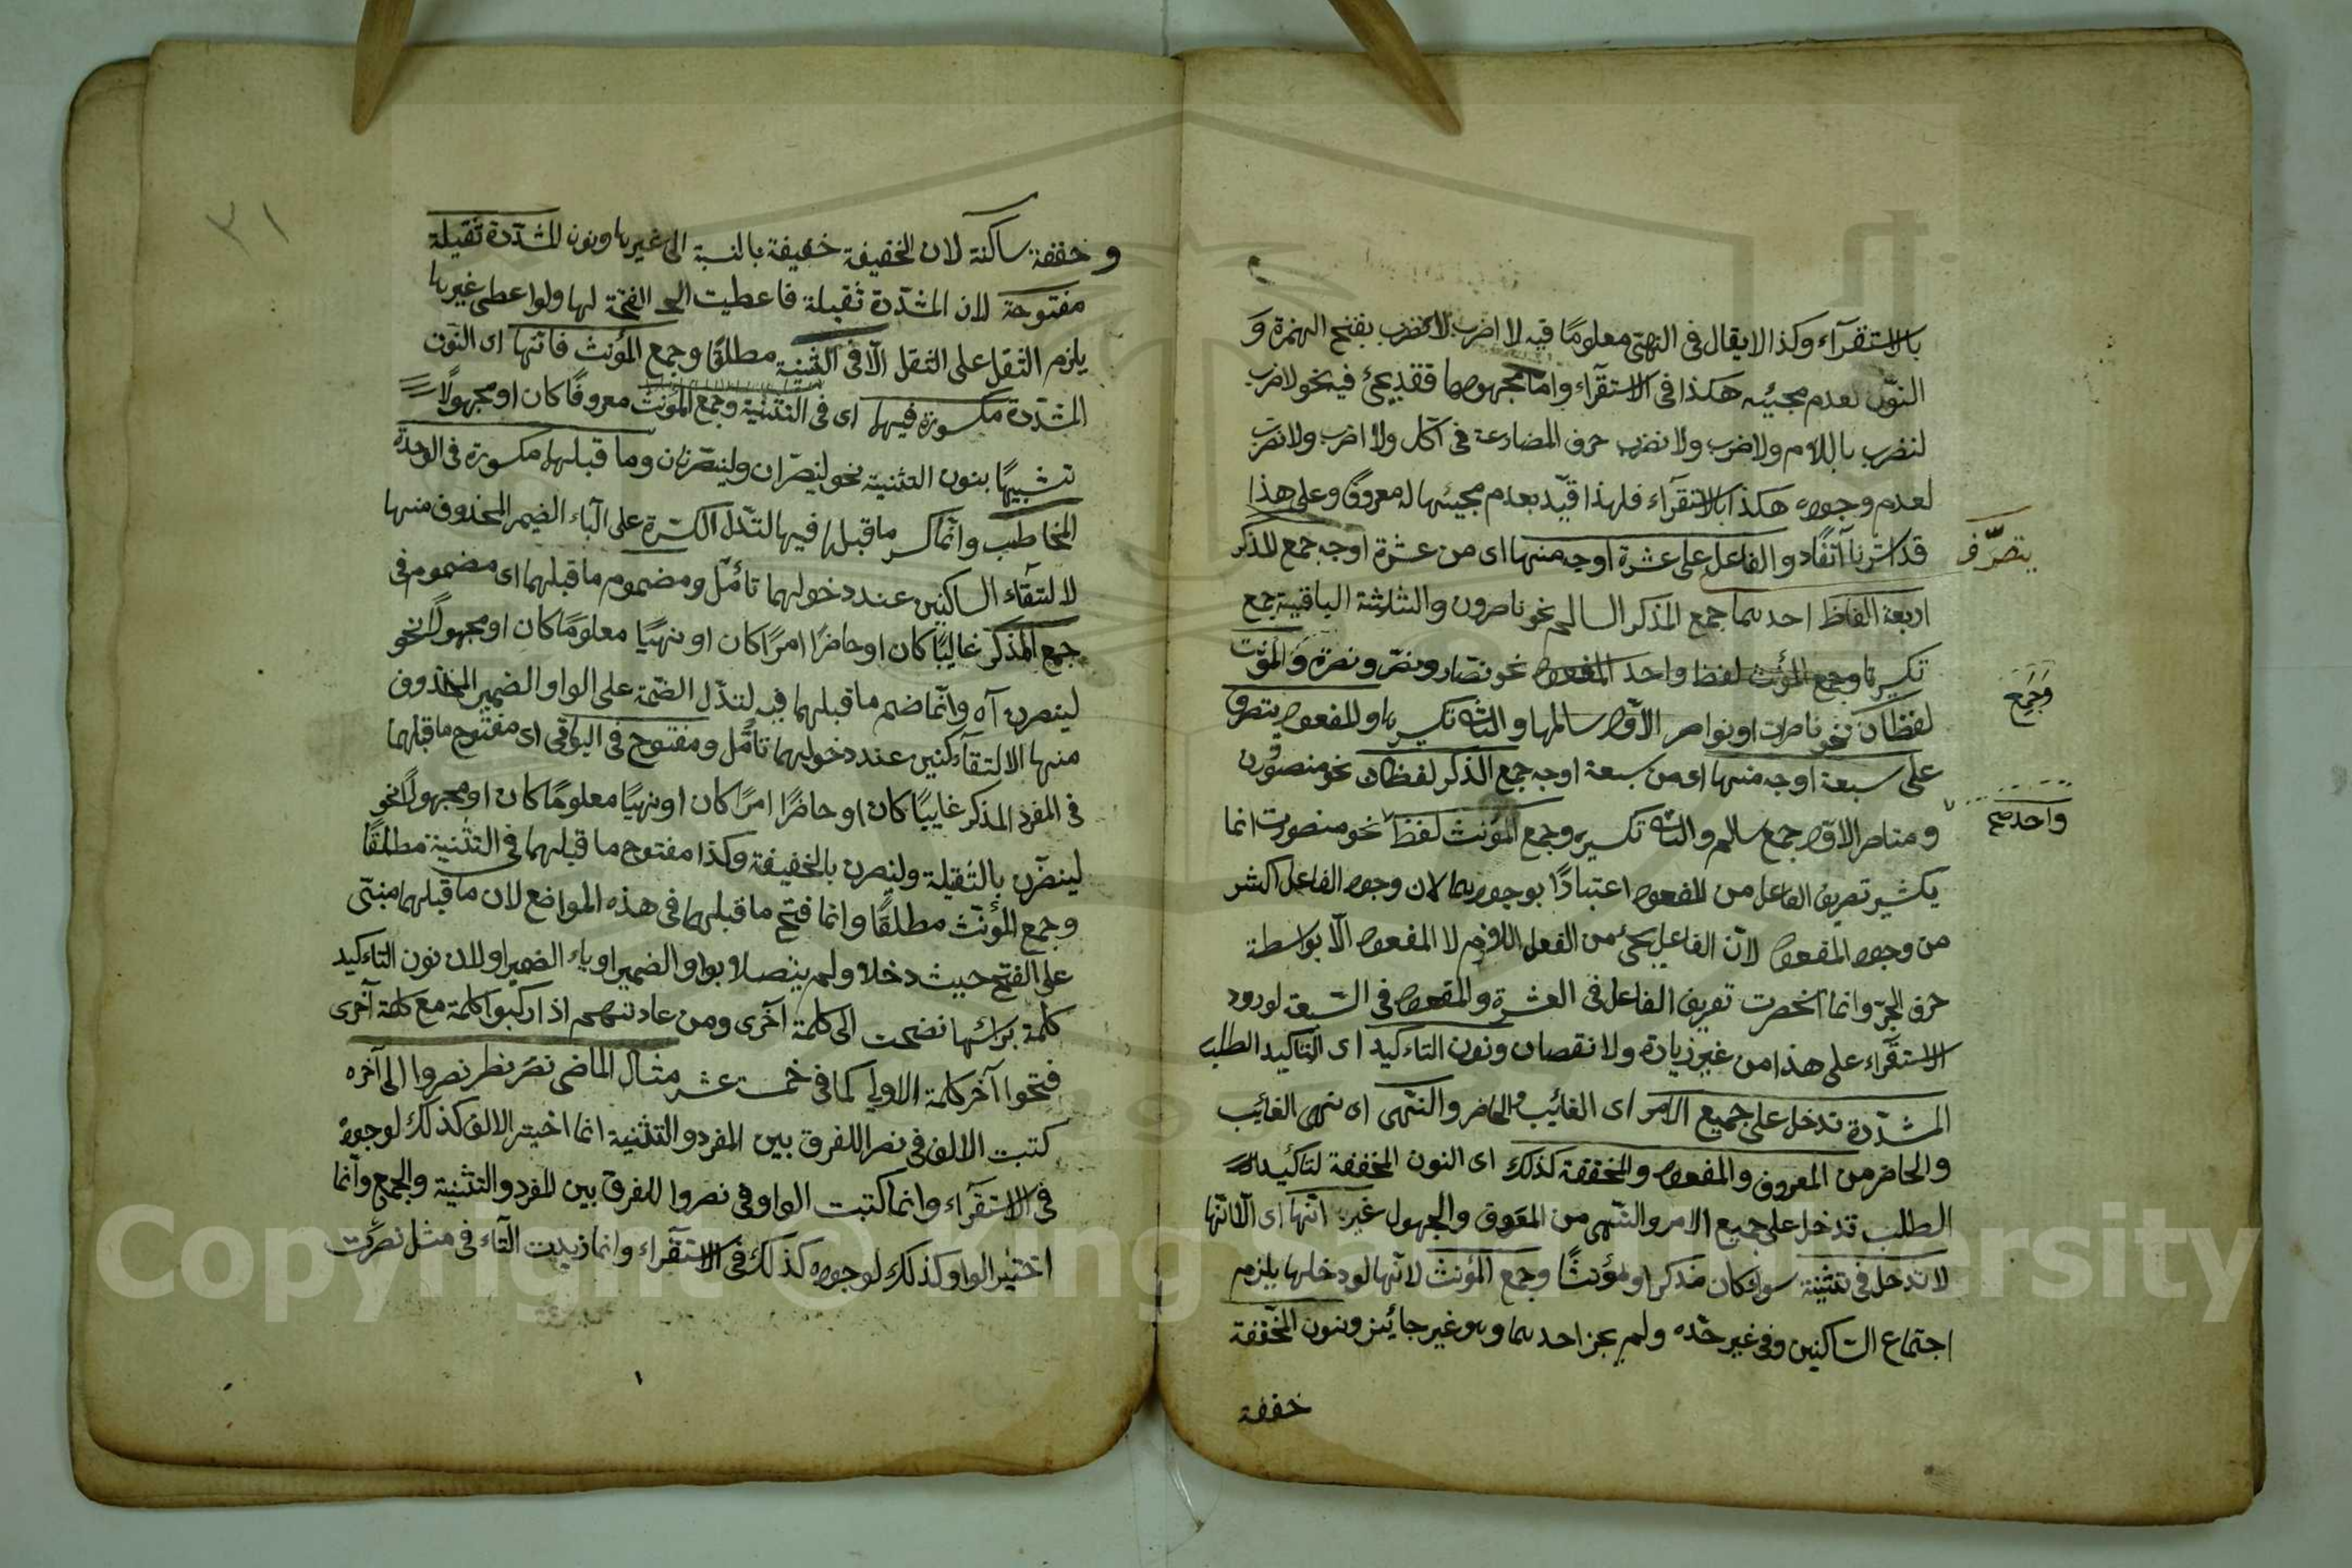 بالاستقرآء وكذا لا يقال فى النهى معلومًا فيه لا اضرب لا نضرب بفتح الهمزة و
النّون لعدم مجيئه هكذا فى الاستقرآء وامّا مجهولهما فقد يجئ فيه نحو لاضرب
لنضرب باللام ولاضرب ولا نضرب حرف المضارعة فى آكل ولا اضرب ولا نضرب
لعدم وجوده هكذا بالاستقرآء فلهذا قيّد بعدم مجيئهما له معروفًا وعلى هذا
قد اشرنا آنفًا والفاعل على عشرة اوجه منها اى من عشرة اوجه جمع المذكر
يتصرّف
اربعة الفاظ احدهما جمع المذكر السالم نحو ناصرون والثلاثة الباقية جمع
تكسيرها وجمع المؤنث لفظا واحد المفعول نحو نصّار ونصّر ونصرة والمؤنث
وَجَمع
لفظان نحو ناصرات او نواصر الاوّل سالمها والثانى تكسيرها والمفعول يتصرف
على سبعة اوجه منها اى من سبعة اوجه جمع المذكر لفظان نحو منصورون
ومناصر الاوّل جمع سالم والثانى تكسيره وجمع المؤنث لفظ نحو منصورت انما
واحد صح
يكثير تصريف الفاعل من المفعول اعتبارًا بوجودهما لان وجود الفاعل اكثر
من وجود المفعول لانّ الفاعل يجئ من الفعل اللازم لا المفعول الّا بواسطة
حرف الجرّ وانما انحصرت تعريف الفاعل فى العشرة والمفعول فى السّبعة لورود
الاستقرآء على هذا من غير زيادة ولا نقصان ونون التاءكيد اى التاكيد الطلب
المشدّدة تدخل على جميع الامر اى الغائب والحاضر والنّهى اى نهى الغائب
والحاضر من المعروف والمفعول والمخففة كذلك اى النون المخففة لتاكيد
الطلب تدخل على جميع الامر والنّهى من المعروف والمجهول غير انّها اى الّا انّها
لا تدخل فى تثنية سواء كان مذكرا او مؤنثًا وجمع المؤنث لانّها لو دخلها يلزم
اجتماع السّاكنين وفى غير حدّه ولم يجز احدهما وهو غير جائز ونون المخففة
خففة
٣١
و خففة ساكنة لان الخفيفة خفيفة بالنسبة الى غيرها ونون المشدّدة ثقيلة
مفتوحة لان المشدّدة ثقيلة فاعطيت الفتحة لها ولو اعطى غيرها
يلزم الثقل على الثقل الّا فى التثنية مطلقًا وجمع المؤنث فانّها اى النّون
المشدّدة مكسورة فيهما اى فى التثنية وجمع المؤنث معروفًا كان او مجهولًا
تشبيهًا بنون التثنية نحو لينصرّان ولينصرنان وما قبلهما مكسورة فى الوحدة
المخاطب وانّما كسر ما قبلها فيها لتدّل الكسرة على الياء الضمير المحذوف منها
لالتقآء الساكنين عند دخولهما تأمّل ومضموم ما قبلهما اى مضموم فى
جمع المذكر غائبًا كان او حاضرًا امرًا كان او نهيًا معلومًا كان او مجهولًا نحو
لينصرن آه وانّما ضم ما قبلهما فيه لتدّل الضّمة على الواو الضمير المحذوف
منها لالتقآء كنين عند دخولهما تأمّل ومفتوح فى البواقى اى مفتوح ما قبلهما
فى المفرد المذكر غايبًا كان او حاضرًا امرًا كان او نهيًا معلومًا كان او مجهولًا نحو
لينصرّن بالثقيلة ولينصرن بالخفيفة وكذا مفتوح ما قبلهما فى التثنية مطلقًا
وجمع المؤنّث مطلقًا وانما فتح ما قبلهما فى هذه المواضع لان ما قبلهما مبنّى
على الفتح حيث دخلا ولم يتصلا بواو الضمير او ياء الضمير او لان نون التاءكيد
كلمة برائسها نضحت الى كلمة آخرى ومن عادتهم اذا ركبوا كلمة مع كلمة آخرى
فتحوا آخر كلمة الاولى كما فى خمسة عشر مثال الماضى نصر نصرا نصروا الى آخره
كتبت الالف فى نصرا للفرق بين المفرد والتثنية انما اختير الالف كذلك لوجوده
فى الاستقرآء وانما كتبت الواو فى نصروا للفرق بين المفرد والتثنية والجمع وانّما
اختير الواو كذلك لوجوده كذلك فى الاستقرآء وانما زيدت التّاء فى مثل نصرت
Copyright © King Saud University